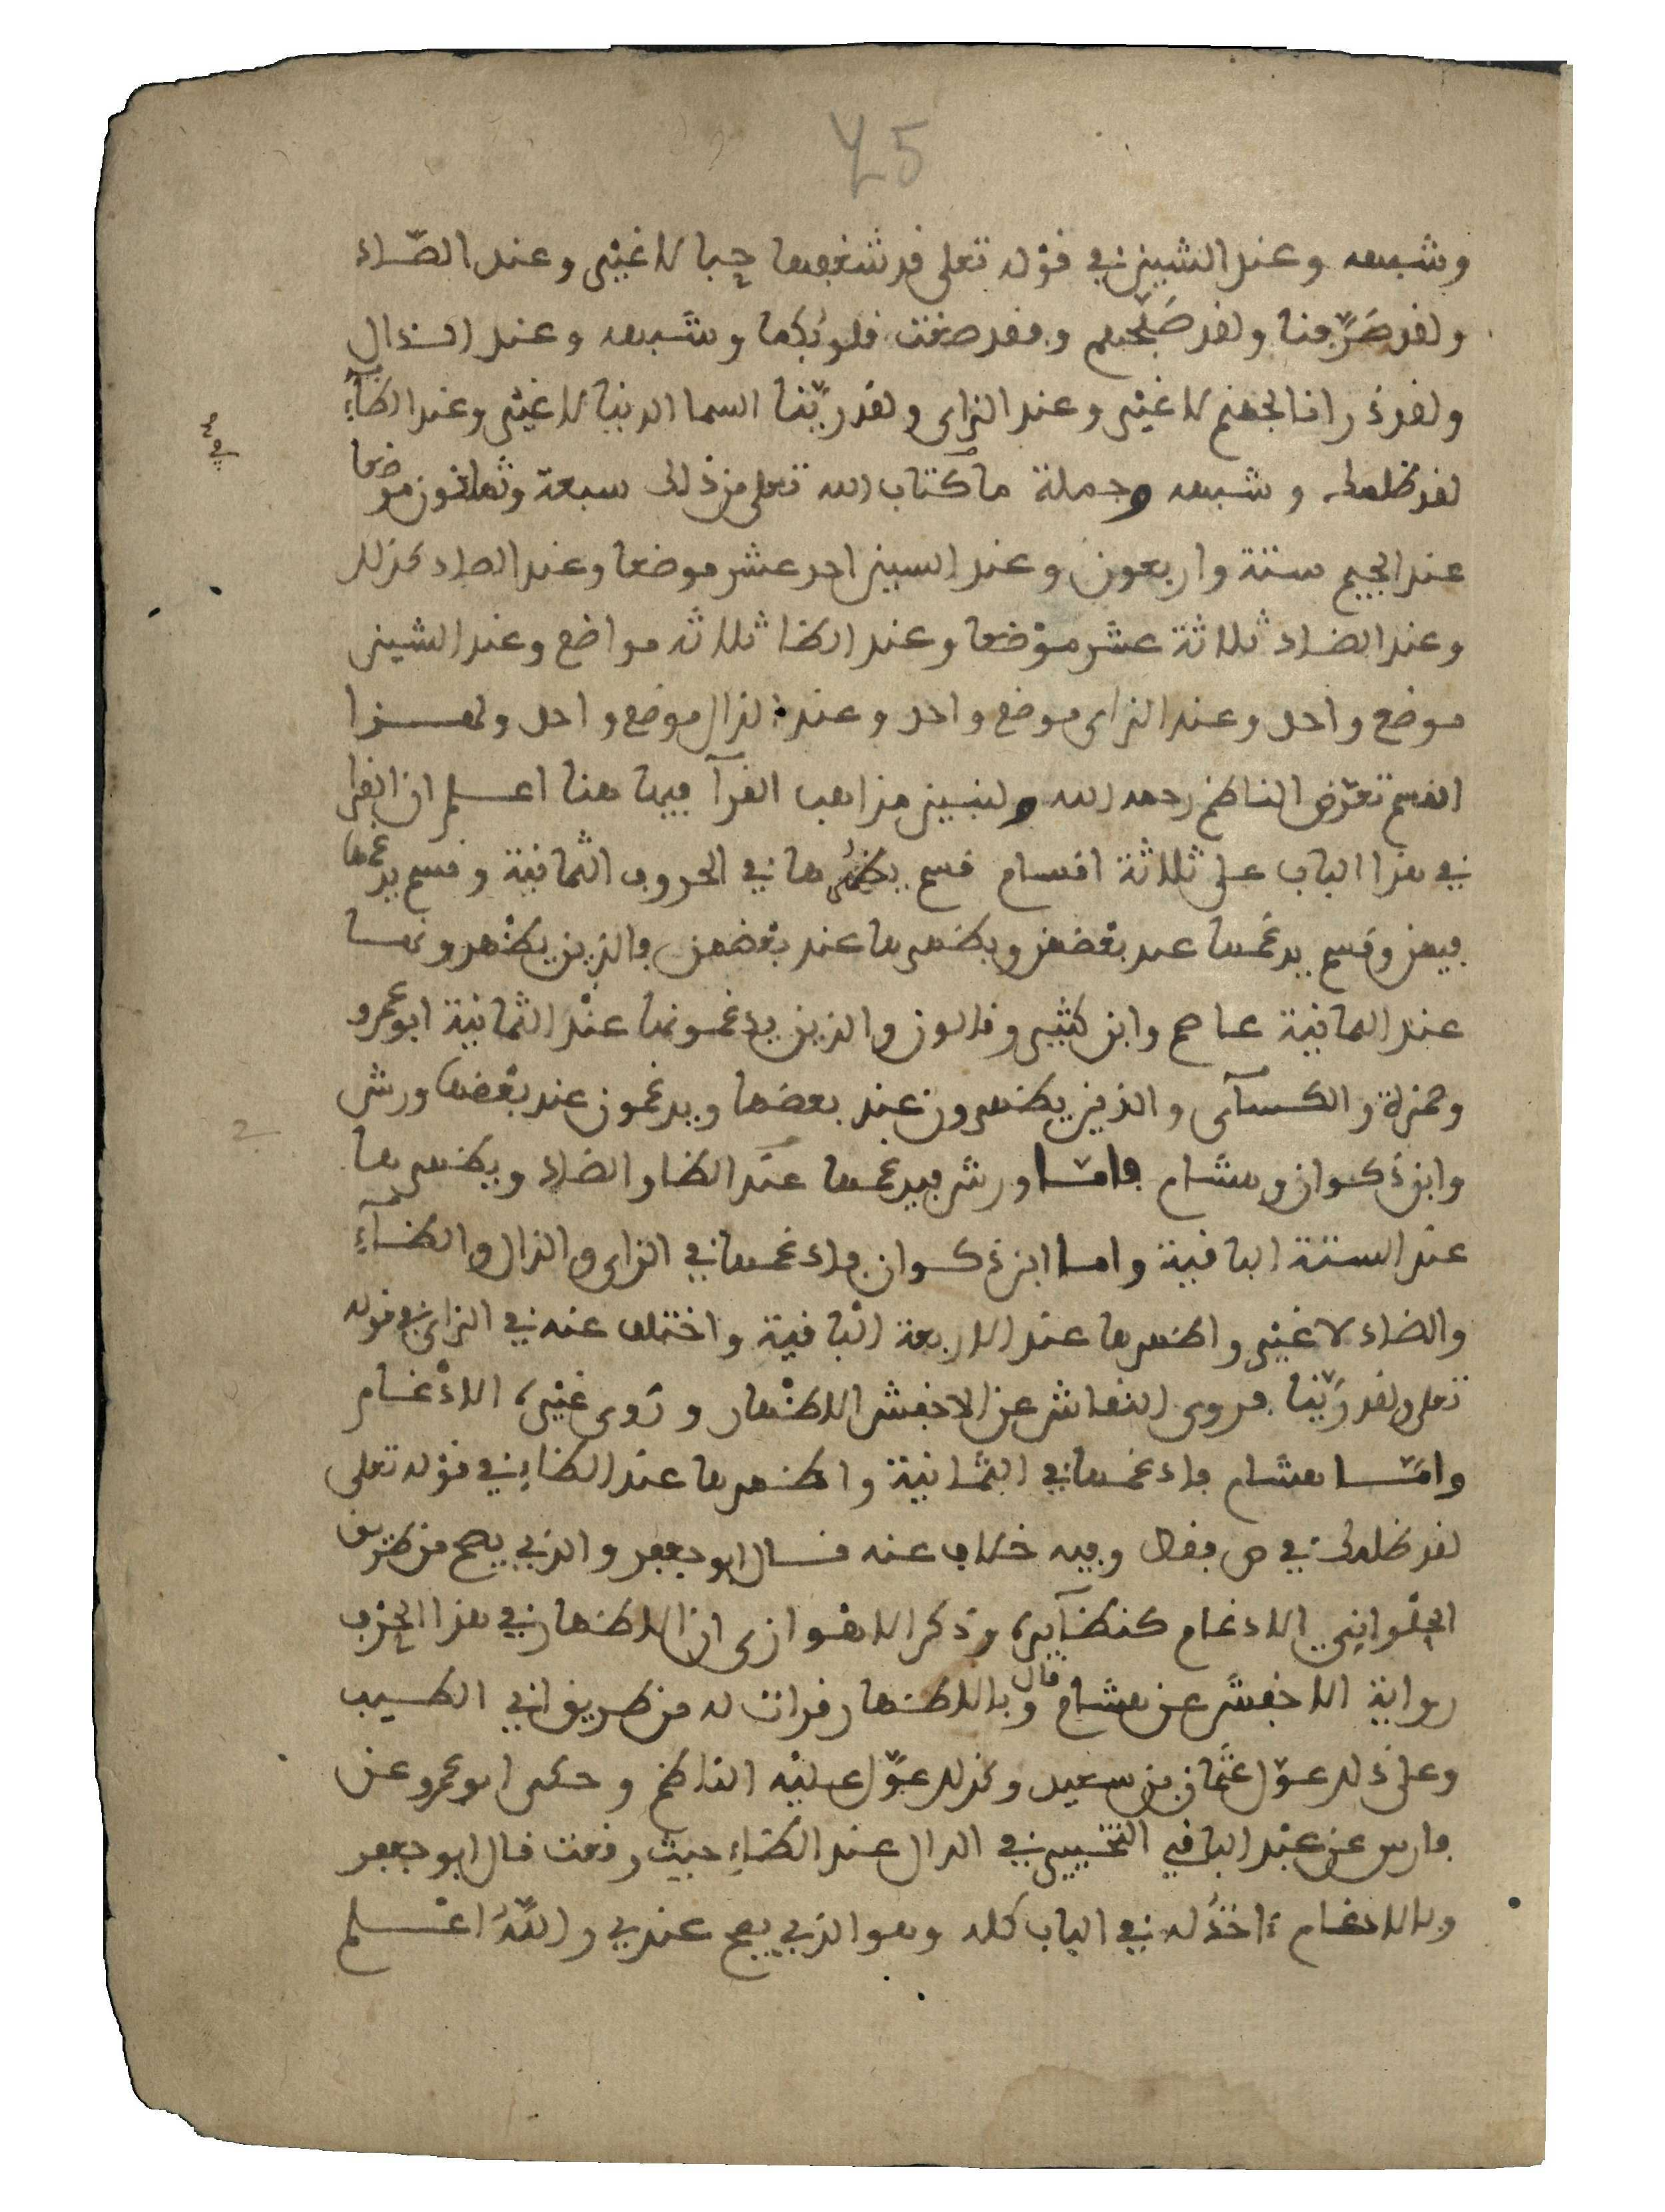 45
وشبهه وعند الشين في قوله تعلى قد شغفها حبا لا غير وعند الصاد
ولقد صرّفنا ولقد صبّحهم وفقد صغت قلوبكما وشبهه وعند الذال
ولقد ذرانا لجهنم لا غير وعند الزاى ولقد زيّنا السما الدنيا لا غير وعند الظاء
لقد ظلمك وشبهه وجملة ما كتاب الله تعلى من ذلك سبعة وثمانون موضعا
عند الجيم ستة واربعون وعند السين احد عشر موضعا وعند الصاد كذلك
وعند الضاد ثلاثة عشر موضعا وعند الظا ثلاثه مواضع وعند الشين
موضع واحد وعند الزاى موضع واحد وعند الذال موضع واحد ولهذا
القسم تعرّض الناظم رحمه الله ولنبين مذاهب القرآ فيها هنا اعلم ان القرا
في هذا الباب على ثلاثة اقسام قسم يظهرها في الحروف الثمانية وقسم يدغمها
فيهن وقسم يدغمها عند بعضهن ويظهرها عند بعضهن فالذين يظهرونها
عند الثمانية عاصم وابن كثير وقالون والذين يدغمونها عند الثمانية ابو عمرو
وحمزة والكسآى والذين يظهرون عند بعضها ويدغمون عند بعضها ورش
وابن ذكوان وهشام فامّا ورش فيدغمها عند الظا والضاد ويظهرها
عند الستة الباقية واما ابن ذكوان فادغمها في الزاى والذال والظآءِ
والضاد لا غير واظهرها عند الاربعة الباقية واختلف عنه في الزاى في قوله
تعلى ولقد زيّنا فروى النقاش عن الاخفش الاظهار وروى غيره الادغام
وامّا هشام فادغمها في الثمانية واظهرها عند الظاء في قوله تعلى
لقد ظلمك في ص فقط وفيه خلاف عنه قال ابو جعفر والذي يصح من طريق
الحلواني الادغام كنظآيره وذكر الاهوازى ان الاظهار في هذا الحرف
رواية الاخفش عن هشام قال وبالاظهار قرات له من طريق ابي الطيب
وعلى ذلك عوّل عثمان بن سعيد وكذلك عوّل عليه الناظم وحكى ابو عمرو عن
فارس عن عبد الباقي التخيير في الدال عند الظاءِ حيث وقعت قال ابو جعفر
وبالادغام ءاخذُ له في الباب كله وهو الذي يصح عندي واللّهُ اعلم